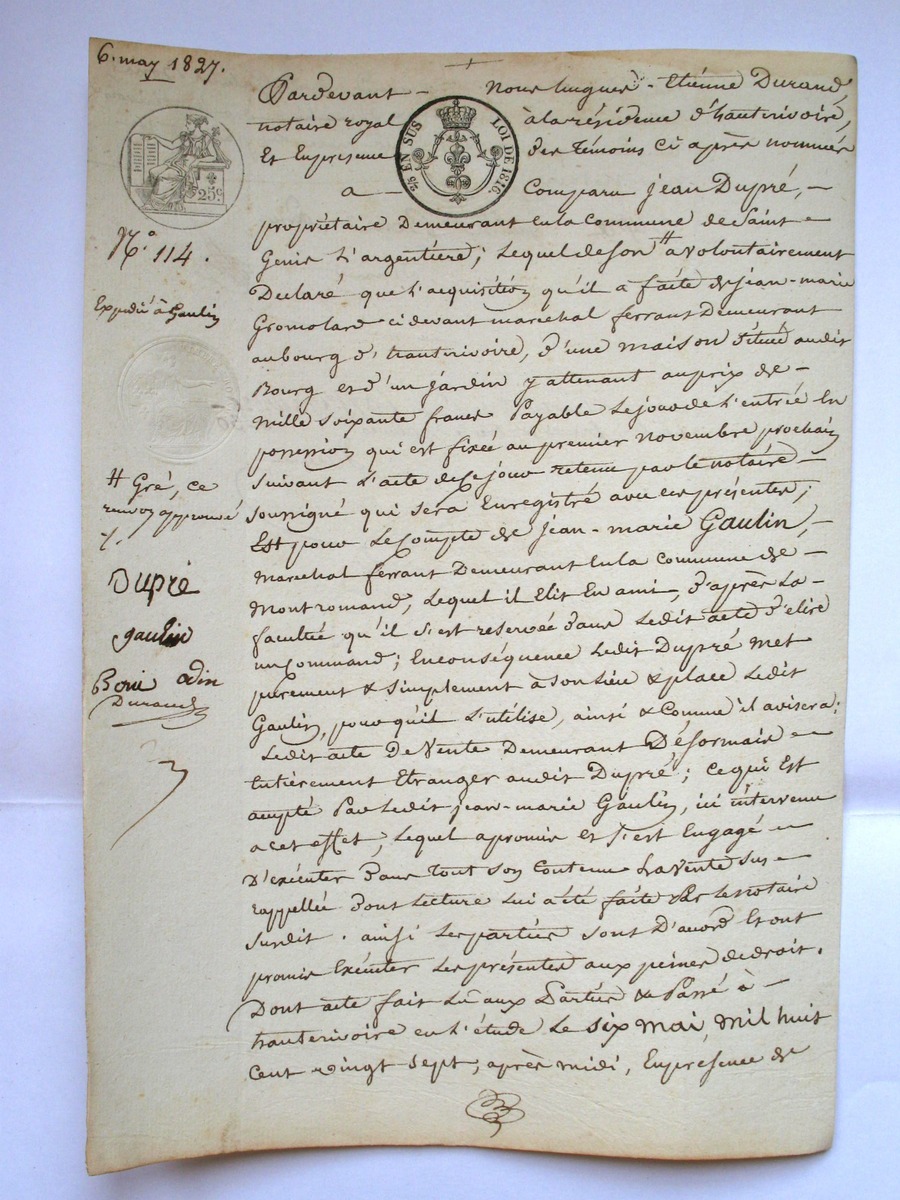 6. may 1827.
Pardevant - Nous hugues - Etiénne Durand
notaire royal à la résidence d'hauterivoire,
Et En présence des témoins Ci après nommés
2/5 EN SUS LOI DE 1816.
25c.
a - Comparu jean Dupré, -
propriétaire Demeurant En la Commune de Saint =
N.° 114.
Genis L'argentière; Lequel de son # a volontairement
Déclaré que L'acquisition qu'il a faite de jean-marie
Expédié à Gaulin
Gromolard ci devant maréchal ferrant Demeurant
au bourg d'hauterivoire, d'une maison située au dit
Bourg et d'un jardin y attenant au prix de -
Mille soixante francs Payable Le jour de L'entrée En
possession qui est fixée au premier novembre prochain
Suivant L'acte de Ce jour retenu par le notaire -
# Gré, ce
renvoy approuvé
/.
soussigné qui sera Enregistré avec ces présentes;
Est pour Le Compte de jean-marie Gaulin, -
Maréchal ferrant Demeurant En la Commune de -
Dupré
Montromand, Lequel il Elit En ami, d'après La -
faculté qu'il s'est reservée dans Ledit acte d'elire
gaulin
un Command; En conséquence Ledit Dupré met
Odin
purement & simplement à son Lieu & place Ledit
Durand
Gaulin, pour qu'il L'utélise, ainsi & Comme il avisera;
Ledit acte De Vente Demeurant Désormais =
Entiérement Etranger audit Dupré; Ce qui Est
accepté Par Ledit jean-marie Gaulin, ici intervenu
a cet effet, Lequel a promis et s'est Engagé =
D'exécuter dans tout son Contenu La Vente sus =
rappellée dont Lecture Lui a été faite Par Le notaire
susdit. ainsi Les parties sont D'accord Et ont
promis Exécuter Les présentes aux peines de droit.
Dont acte fait Lu aux Parties & Passé à -
hauterivoire en L'étude Le six mai, mil huit
Cent vingt sept, après midi, En présence de